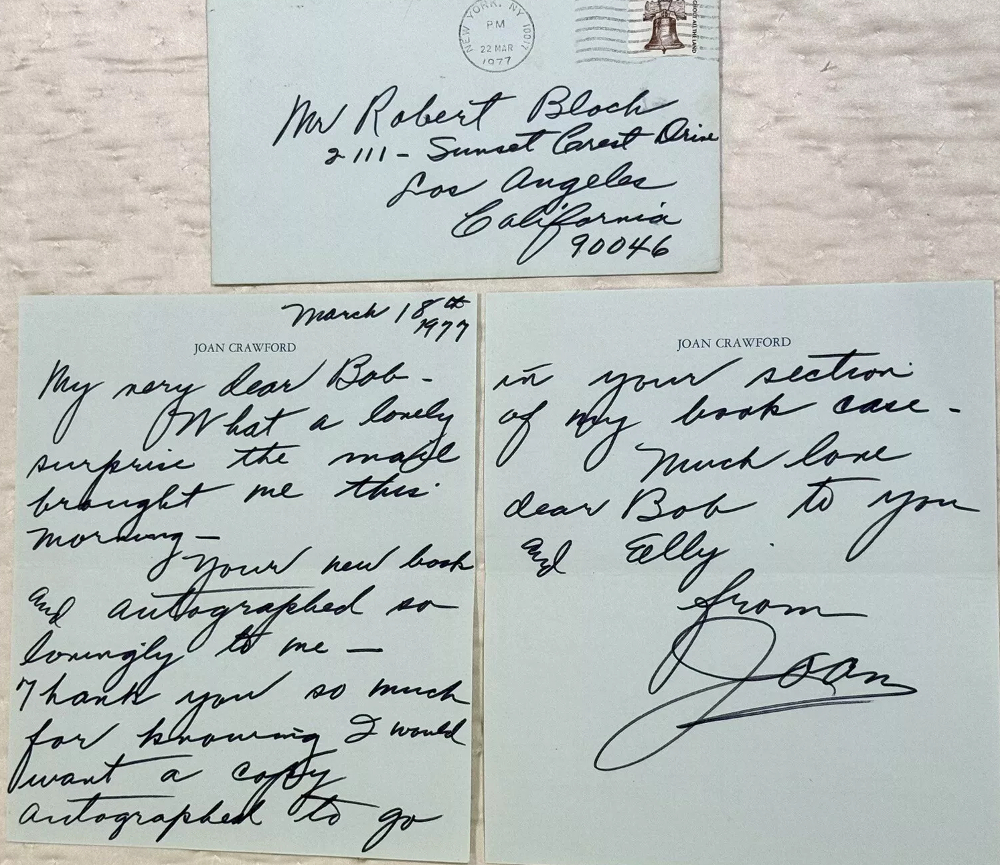 NEW YORK, NY 10017
PM
22 MAR
1977
Mr Robert Bloch
2111 - Sunset Crest Drive
Los Angeles
California
90046
March 18th
1977
JOAN CRAWFORD
My very dear Bob -
What a lovely
surprise the mail
brought me this
morning -
Your new book
and autographed so
lovingly to me -
Thank you so much
for knowing I would
want a copy
autographed to go
JOAN CRAWFORD
in your section
of my book case -
Much love
dear Bob to you
and Elly .
from
Joan